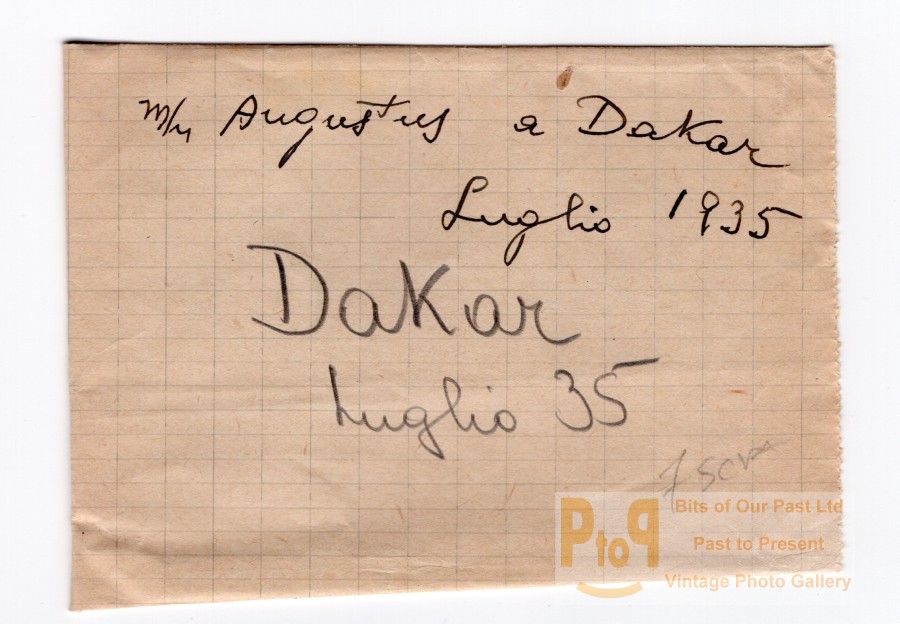 m/n Augustus a Dakar
Luglio 1935
Dakar
Luglio 35
PtoP
Bits of Our Past Ltd
Past to Present
Vintage Photo Gallery